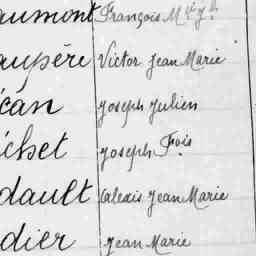 aumont François M
aupère Victor Jean Marie
éan Joseph Julien
ichet Joseph Fois
dault Alexis Jean Marie
dier Jean Marie